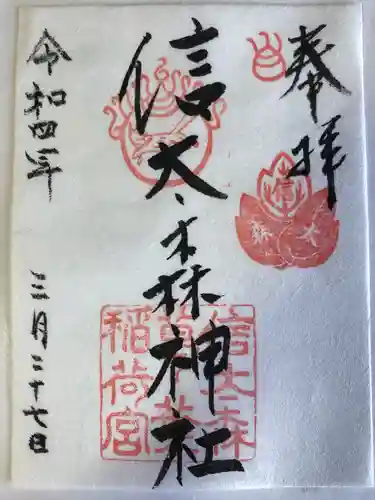 奉拝
信太森神社
信太森
葛葉
稲荷宮
令和四年
三月二十七日